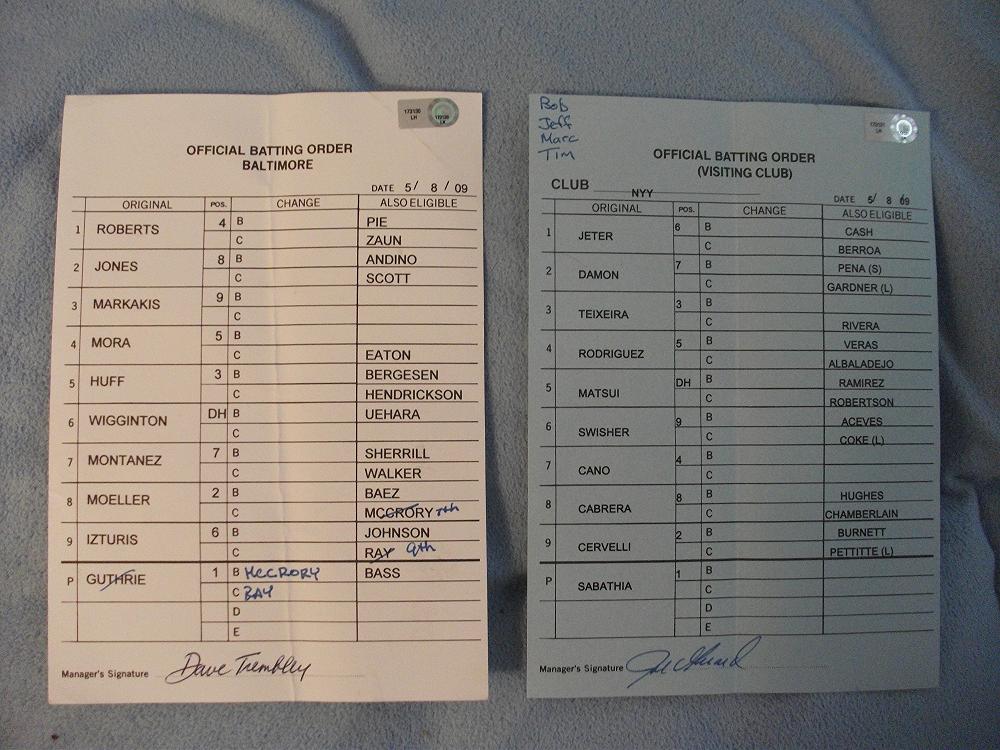 173130
LH
OFFICIAL BATTING ORDER
BALTIMORE
DATE 5/ 8 / 09
ORIGINAL POS. CHANGE ALSO ELIGIBLE
1 ROBERTS 4 B PIE
C ZAUN
2 JONES 8 B ANDINO
C SCOTT
3 MARKAKIS 9 B
C
4 MORA 5 B
C EATON
5 HUFF 3 B BERGESEN
C HENDRICKSON
6 WIGGINTON DH B UEHARA
C
7 MONTANEZ 7 B SHERRILL
C WALKER
8 MOELLER 2 B BAEZ
C MCCRORY 7th
9 IZTURIS 6 B JOHNSON
C RAY 9th
P GUTHRIE 1 B MCCRORY BASS
C RAY
D
E
Manager's Signature Dave Trembley
Bob
Jeff
Marc
Tim
OFFICIAL BATTING ORDER
(VISITING CLUB)
CLUB NYY
DATE 5/ 8 09
ORIGINAL POS. CHANGE ALSO ELIGIBLE
1 JETER 6 B CASH
C BERROA
2 DAMON 7 B PENA (S)
C GARDNER (L)
3 TEIXEIRA 3 B
C RIVERA
4 RODRIGUEZ 5 B VERAS
C ALBALADEJO
5 MATSUI DH B RAMIREZ
C ROBERTSON
6 SWISHER 9 B ACEVES
C COKE (L)
7 CANO 4 B
C
8 CABRERA 8 B HUGHES
C CHAMBERLAIN
9 CERVELLI 2 B BURNETT
C PETTITTE (L)
P SABATHIA 1 B
C
D
E
Manager's Signature